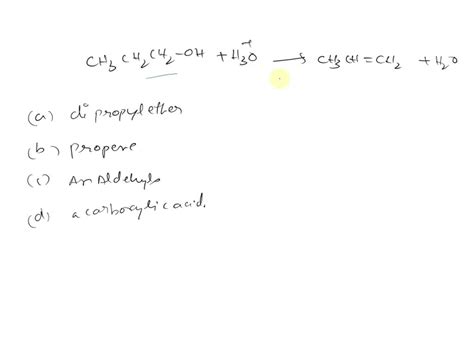 CH₃CH₂CH₂-OH + H₃O⁺ → CH₃CH=CH₂ + H₂O
(a) di propylether
(b) propene
(c) An Aldehyde
(d) a carboxylic acid.